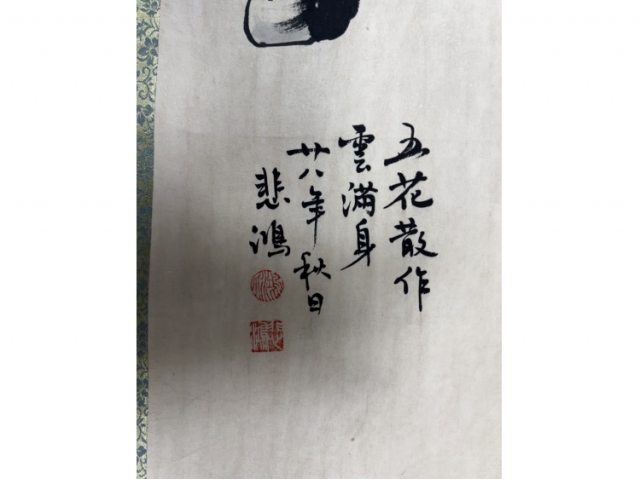 五花散作
雲滿身
廿八年秋日
悲鴻
悲鴻